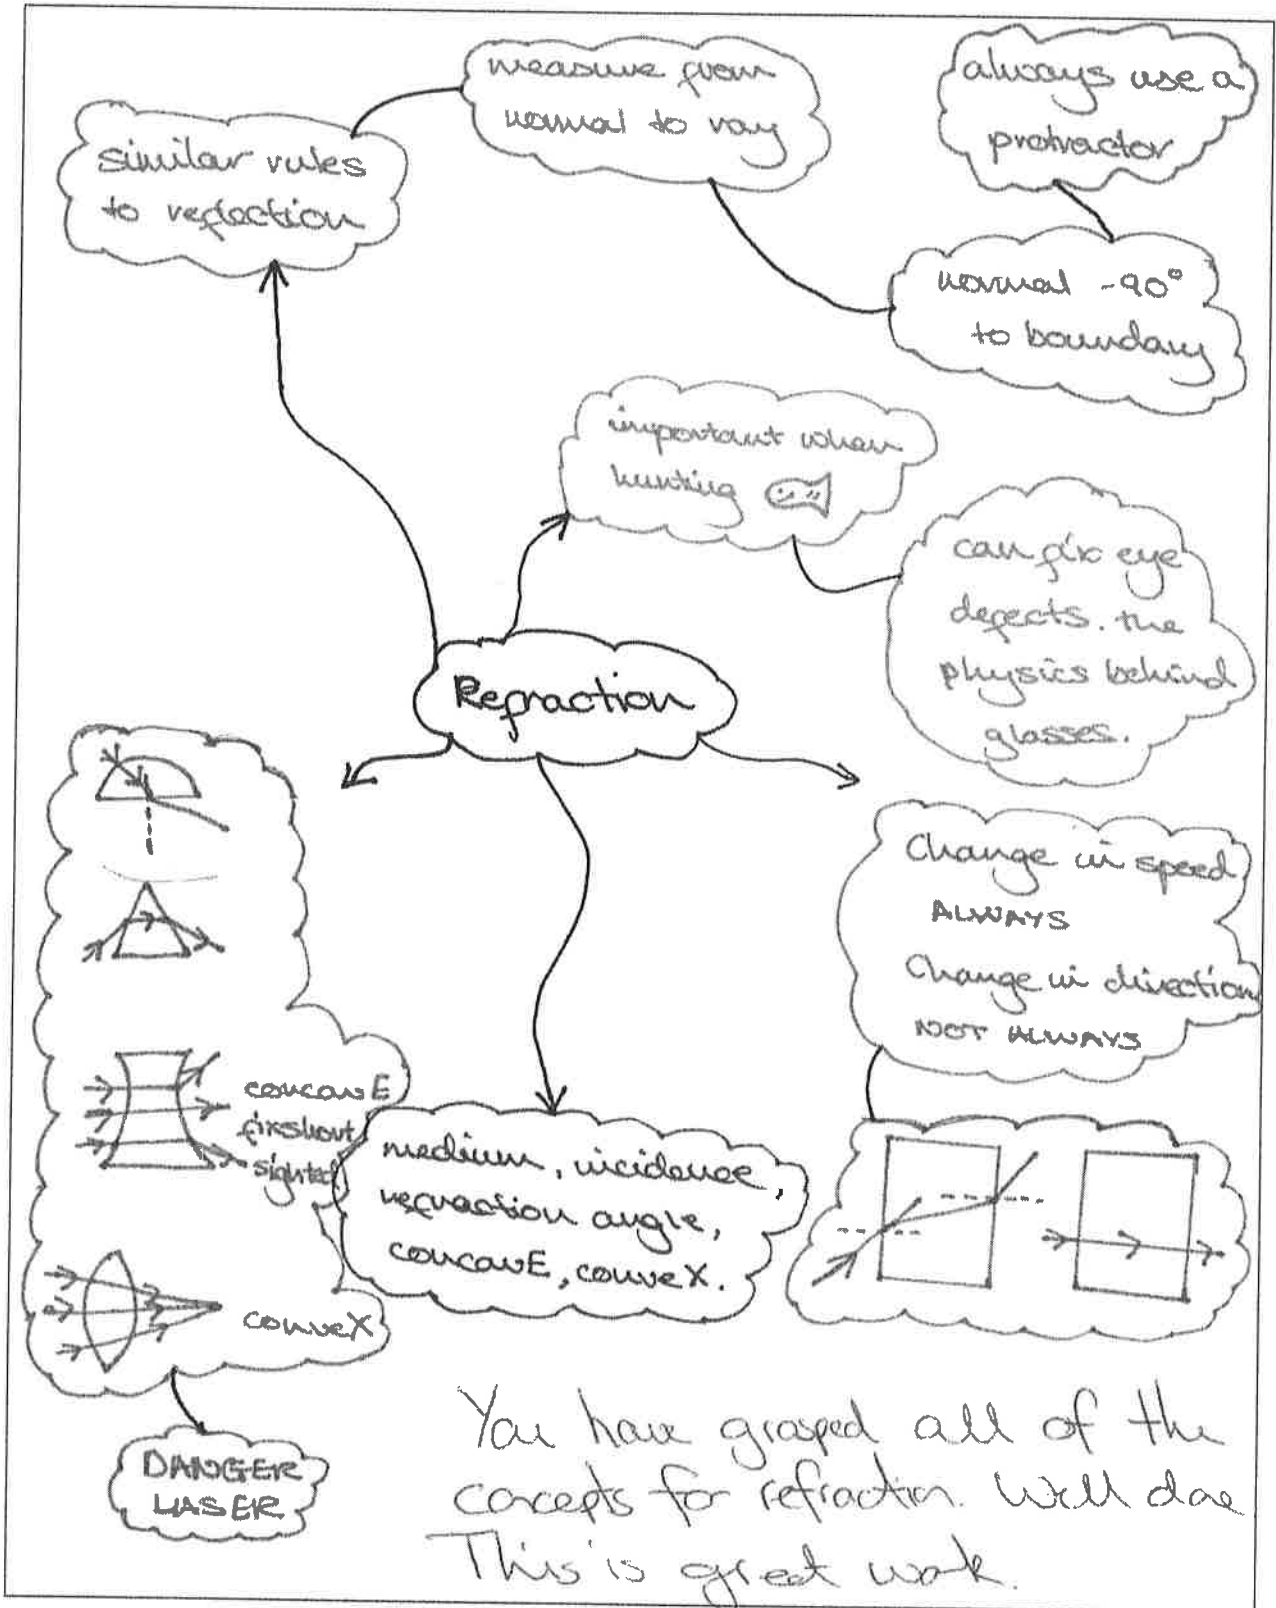 measure from
normal to ray
always use a
protractor
similar rules
to reflection
normal - 90°
to boundary
important when
hunting
can fix eye
defects. the
physics behind
glasses.
Refraction
Change in speed
ALWAYS
Change in direction
NOT ALWAYS
concavE
fix short
sighted
medium, incidence,
refraction angle,
concavE, conveX.
conveX
DANGER
LASER
You have grasped all of the
concepts for refraction. Well done
This is great work.